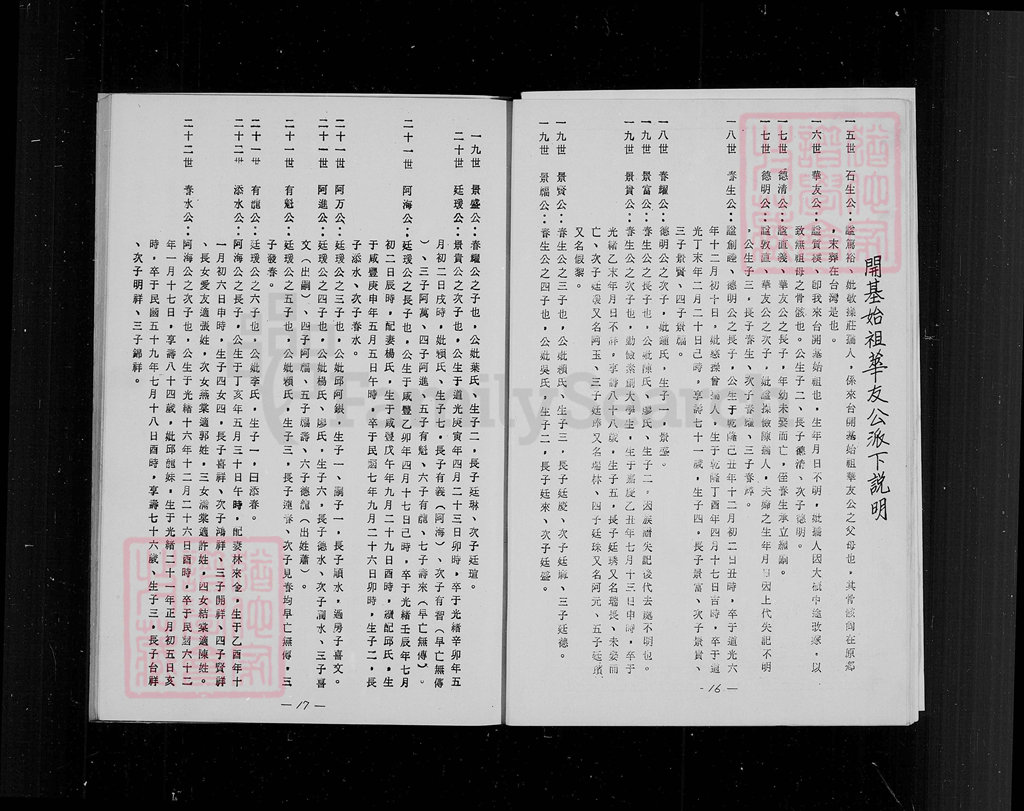 開基始祖華友公派下說明
一五世 石生公：諡篤裕、妣敏操莊孺人，係來台開基始祖華友公之父母也，其骨骸尚在原鄉
，未葬在台灣是也。
一六世 華友公：諡質樸、即我來台開基始祖也，生年月日不明，妣孺人因大禍中途改嫁，以
致無祖母之骨骸也。公生子二、長子德清、次子德明。
一七世 德清公：諡直義、華友公之長子，年幼未娶而亡，侄春生承立繼嗣。
一七世 德明公：諡敦直、華友公之次子，妣諡操儉陳孺人，夫婦之生年月日因上代失記不明
，公生子三，長子春生、次子春耀、三子春郎。
一八世 春生公：諡創謹、德明公之長子，公生于乾隆己丑年十二月初二日丑時，卒于道光六
年十二月初十日，妣慈操曾孺人，生于乾隆丁酉年四月十七日吉時，卒于道
光丁未年二月二十日己時，享壽七十一歲，生子四，長子景富、次子景貴、
三子景賢、四子景福。
一八世 春耀公：德明公之次子，妣鍾氏，生子一，景盛。
一九世 景富公：春生公之長子也，公妣陳氏、廖氏、生子二，因族譜失記後代去處不明也。
一九世 景貴公：春生公之次子也，勤儉素創大學生，生于嘉慶乙丑年七月十三日申時，卒于
光緒乙未年月日不詳，享壽八十八歲，生子五，長子廷琇又名瑞長、未娶而
亡、次子廷瑗又名阿玉、三子廷琫又名瑞林、四子廷珠又名阿元、五子廷璸
又名假黎。
一九世 景賢公：春生公之三子也，公妣賴氏、生子三、長子廷慶、次子廷麻、三子廷德。
一九世 景福公：春生公之四子也，公妣吳氏、生子二，長子廷來、次子廷盛。
- 16 —
一九世 景盛公：春耀公之子也，公妣葉氏，生子二，長子廷琳、次子廷瑄。
二十世 廷瑗公：景貴公之次子也，公生于道光庚寅年四月二十三日卯時，卒于光緒辛卯年五
月初二日戌時，妣賴氏、生子七，長子有義（阿海）、次子有智（早亡無傳
）、三子阿萬、四子阿進、五子有魁、六子有龍、七子壽來（早亡無傳）。
二十一世 阿海公：廷瑗公之長子也，公生于咸豐乙卯年四月十七日己時，卒于光緒壬辰年七月
初二日辰時，配妻楊氏，生于咸豐戊午年九月二十九日酉時，續配邱氏，生
于咸豐庚申年五月五日午時，卒于民國七年九月二十六日卯時，生子二，長
子添水、次子春水。
二十一世 阿万公：廷瑗公之三子也，公妣邱阿銀，生子一、嗣子一，長子順水，過房子喜文。
二十一世 阿進公：廷瑗公之四子也，公妣楊氏、廖氏，生子六，長子德水、次子潤水、三子喜
文（出嗣）、四子阿福、五子福壽、六子德龍（出姓蕭）。
二十一世 有魁公：廷瑗公之五子也，公妣賴氏，生子三，長子連春、次子見春均早亡無傳，三
子發春。
二十一世 有龍公：廷瑗公之六子也，公妣李氏，生子一，曰添春。
二十二世 添水公：阿海公之長子，公生于丁亥年五月三十日午時，配妻林來金，生于乙酉年十
一月初六日申時，生子四女四，長子喜祥、次子鴻祥、三子開祥、四子賢祥
、長女愛友適張姓，次女燕棠適郭姓，三女滿棠適許姓，四女結棠適陳姓。
二十二世 春水公：阿海公之次子也，公生于光緒十六年十二月二十六日酉時，卒于民國六十二
年一月十七日，享壽八十四歲，妣邱龍妹，生于光緒二十一年正月初五日亥
時，卒于民國五十九年七月十八日酉時，享壽七十六歲，生子三，長子台祥
、次子明祥、三子錦祥。
— 17 —
FamilySearch